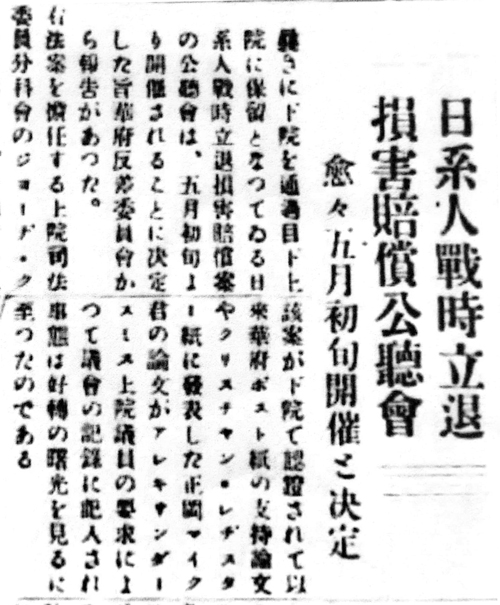 日系人戰時立退
損害賠償公聽會
愈々五月初旬開催と决定
曩きに下院を通過目下上
院に保留となつてゐる日
系人戰時立退損害賠償案
の公聽會は、五月初旬よ
り開催されることに决定
した旨華府反差委員會か
ら報告があつた。
右法案を擔任する上院司法
委員分科會のジョーヂ・ク
該案が下院で認證されて以
來華府ポスト紙の支持論文
やクリスチャン・レヂスタ
ー紙に發表した正岡マイク
君の論文がアレキサンダー
スミス上院議員の要求によ
つて議會の記錄に記入され
事態は好轉の曙光を見るに
至つたのである